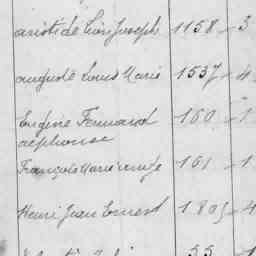 aristide Léon Joseph 1158 - 3
auguste Louis Marie 1537 - 4
Eugène Fernand 160 - 1
alphonse
François Marie 161 - 1
Henri Jean Ernest 1805 - 4
55